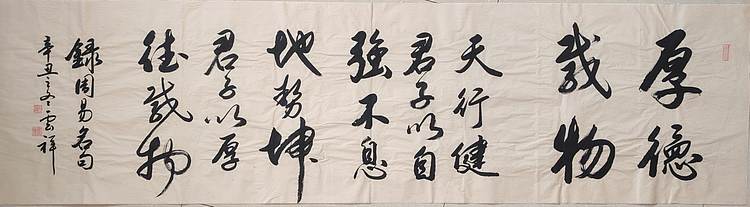 厚德
载物
天行健
君子以自
强不息
地势坤
君子以厚
德载物
録周易名句
辛丑之冬云祥